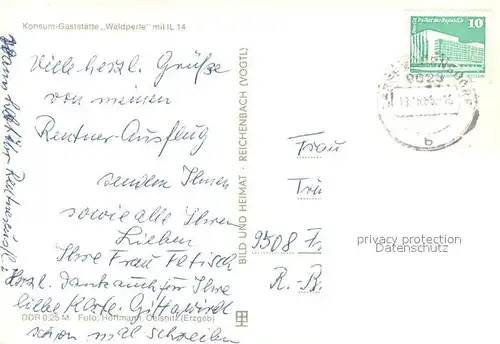 Konsum-Gaststätte „Waldperle" mit IL 14
Viele herzl. Grüße
von meinen
Rentner-Ausflug
senden Ihnen
sowie alle Ihren
Lieben
Ihre Frau Fetisch
Herzl. Dank auch für Ihre
liebe Karte. Gitta wird
schon mal schreiben
Wann habt Ihr
DDR 0,25 M Foto: Hoffmann, Oelsnitz (Erzgeb)
BILD UND HEIMAT · REICHENBACH (VOGTL)
Palast der Republik
10
b
Frau
9508
R.-B.
privacy protection
Datenschutz